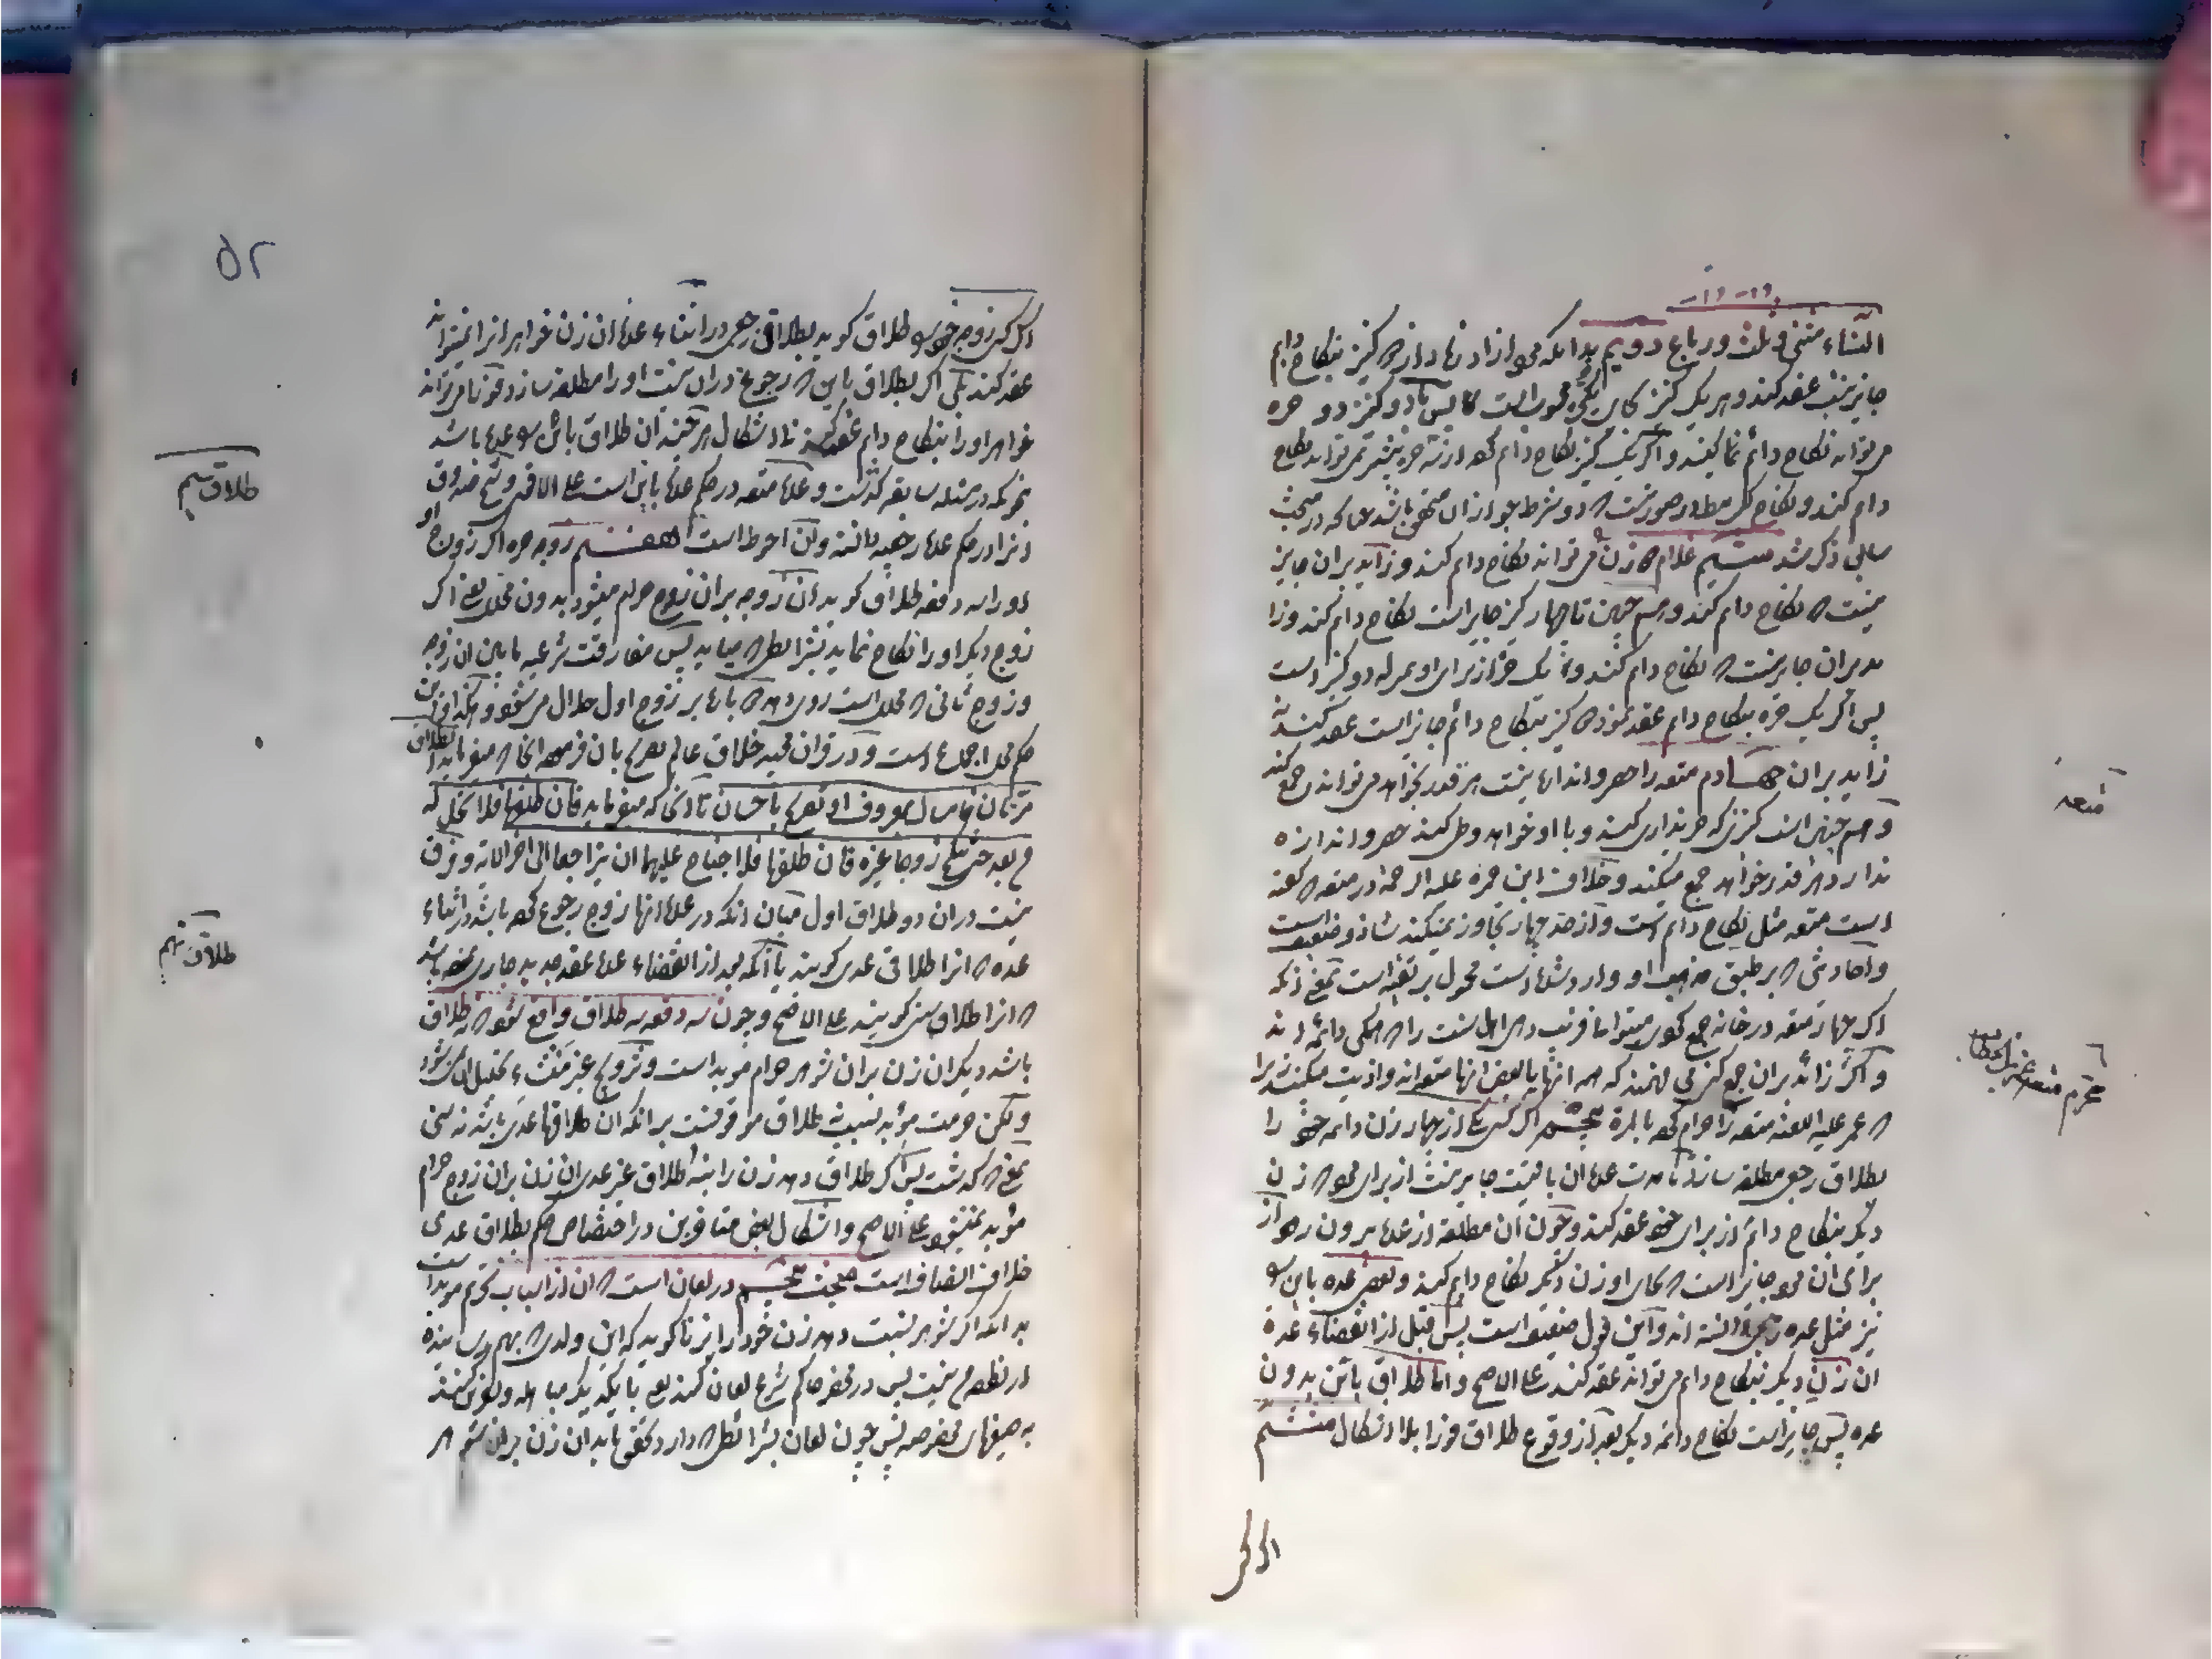 النساء مثنی و ثلث و رباع دویم بدانکه مرد ازاد زیاده از دو کنیز بنکاح دایم
جایز نیست عقد کند و هر یک کنیز بجای یک محسوب است پس با دو کنیز دو حره
می تواند نکاح دائم نماید و اگر یک کنیز نکاح دایم کند از سه حره بیشتر نمی تواند نکاح
دایم کند و نکاح در صورتیست که دو شرط جواز ان متحقق باشد چنانکه در مبحث
سابق ذکر شد سیم غلام دو زن می تواند نکاح دایم کند و زاید بران جایز
نیست که نکاح دایم کند و همچنین تا چهار کنیز جایز است نکاح دایم کند و زا
ید بران جایز نیست که نکاح دایم کند و یک حره از برای او بمنزله دو کنیز است
پس اگر یک حره بنکاح دایم عقد نمود دو کنیز بنکاح دائم جایز است عقد کند نه
زاید بران چهارم متعه را حصر و اندازه نیست هر قدر بخواهد می تواند جمع کند
و همچنین است کنیزی که خریداری کند و با او خواهد وطی کند حصر و اندازه
ندارد هر قدر خواهد جمع میکند و خلاف ابن حمزه علیه الرحمه در متعه که گفته
است متعه مثل نکاح دایم است و از حد چهار تجاوز نمیکند شاذ و ضعیف است
و احادیثی که بر طبق مذهب او وارد شده است محمول بر تقیه است یعنی انکه
اگر چهار متعه در خانه جمع کنی میتوان فریب دهی اهل سنت را که همگی دائمه اند
و اگر زائد بران جمع کنی می فهمند که همه انها یا بعض انها متعه اند و اذیت میکنند زیرا
که عمر علیه اللعنه متعه را حرام کرد بالمره پنجم اگر کسی یکی از چهار زن دائمه خود را
بطلاق رجعی مطلقه سازد تا مدت عده ان باقیست جایز نیست از برای مرد که زن
دیگر بنکاح دائم از برای خود عقد کند و چون ان مطلقه از عده بیرون رود از
برای ان مرد جایز است که بجای او زن دیگر نکاح دایم کند و بعضی عده باین را
نیز مثل عده رجعی دانسته اند و این قول ضعیف است پس قبل از انقضاء عده
ان زن دیگر بنکاح دایم می تواند عقد کند علی الاصح و اما طلاق باین بدون
عده پس جایز است نکاح دائمه دیگر بعد از وقوع طلاق فورا بلا اشکال ششم
اگر کسی
متعه
تحریم متعه عمر بن خطاب
۵۲
اگر کسی زوجه خود را طلاق گوید بطلاق رجعی در اثناء عده ان زن خواهر انرا نمیتواند
عقد کند بلی اگر بطلاق باین که رجوع در ان نیست او را مطلقه سازد فورا می تواند
خواهر او را بنکاح دایم عقد کند بلا اشکال هر چند ان طلاق باین را عده باشد
چونکه در مسئله سابقه گذشت و عده متعه در حکم عده باین است علی الاقوی و شیخ صدوق
انرا در حکم عده رجعیه دانسته و ان احوط است هفتم زوجه حره اگر زوج او
او را سه دفعه طلاق گوید ان زوجه بران زوج حرام میشود بدون محلل یعنی اگر
زوج دیگر او را نکاح نماید بشرایطی که میاید پس مفارقت شرعیه مابین ان زوجه
و زوج ثانی که محلل است روی دهد دوباره بر زوج اول حلال می شود و این
حکم محل اجماع است و در قران مجید خلاق عالم تصریح بان فرموده انجا که میفرماید الطلاق
مرتان فامساک بمعروف او تصریح باحسان تا انجا که میفرماید فان طلقها فلا تحل له
من بعد حتی تنکح زوجا غیره فان طلقها فلا جناح علیهما ان یتراجعا الی اخر الایه و فرق
نیست در ان دو طلاق اول میان انکه در عده انها زوج رجوع کرده باشد در اثناء
عده که انرا طلاق عدی گویند یا انکه بعد از انقضاء عده عقد جدید جاری نموده باشد
که انرا طلاق سنی گویند علی الاصح و چون سه دفعه سه طلاق واقع شود که نه طلاق
باشد دیگر ان زن بران شوهر حرام موبد است و تزویج غیر منشاء تحلیل ان نمی شود
و لکن حرمت موبد بسبب نه طلاق موقوفست بر انکه ان طلاقها عدی باشد نه سنی
بمعنی که گذشت پس اگر طلاق دهد زن را بنه طلاق غیر عدی ان زن بران زوج حرام
موبد نمیشود علی الاصح و اشکال بعض متاخرین در اختصاص حکم بطلاق عدی
خلاف انصاف است مبحث پنجم در لعان است که ان از اسباب تحریم موبد است
بدانکه اگر شوهر نسبت دهد زن خود را بزنا یا گوید که این ولدی که بهم رسانیده
از نطفه من نیست پس در محضر حاکم شرع لعان کنند یعنی با یکدیگر مباهله و نفرین کنند
به صیغهای مخصوصه پس چون لعان بشرائطی که دارد تحقق یابد ان زن بران شوهر
طلاق سیم
طلاق نهم